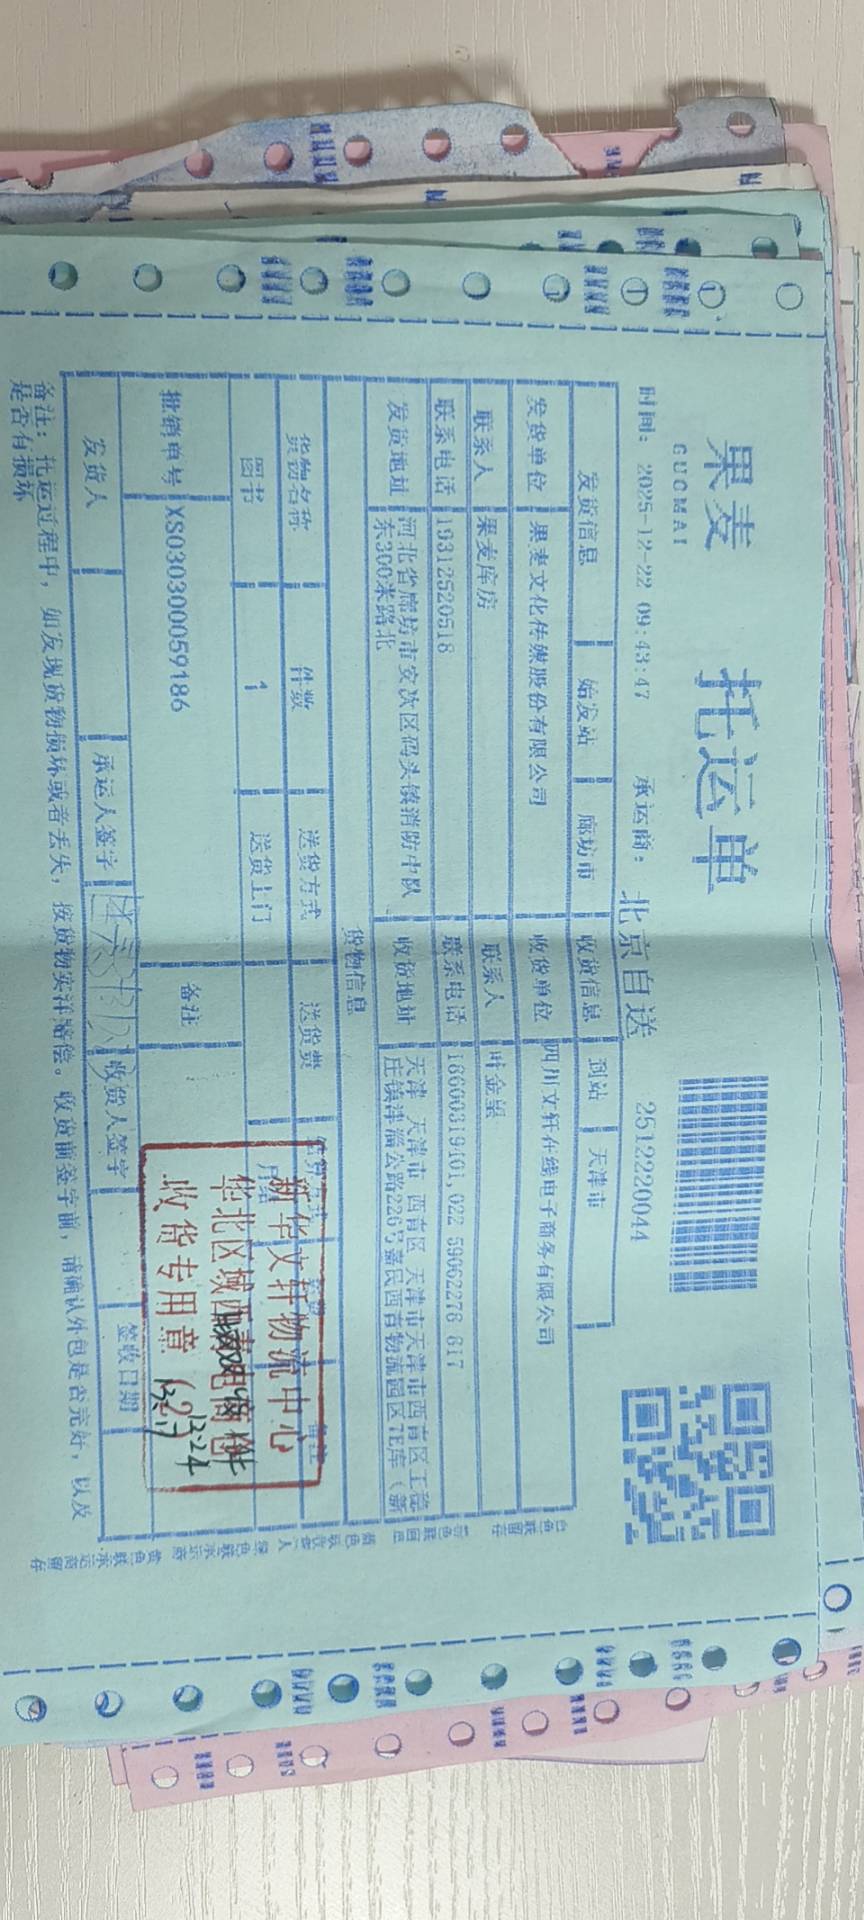 果麦 托运单
GUOMAI
时间: 2025-12-22 09:43:47 承运商: 北京自送 2512220044
发货信息 始发站 廊坊市 收货信息 到站 天津市
发货单位 果麦文化传媒股份有限公司 收货单位 四川文轩在线电子商务有限公司
联系人 果麦库房 联系人 叶金玺
联系电话 19312520518 联系电话
发货地址 河北省廊坊市安次区码头镇消防中队东300米路北 收货地址 天津 天津市 西青区 天津市天津市西青区王稳庄镇津淄公路226号嘉民西青物流园区7E库(新
货物信息
货物名称 件数 送货方式 送货费 备注
图书 1 送货上门
批销单号 XS030300059186 备注
发货人 承运人签字 收货人签字 签收日期
备注: 托运过程中, 如发现货物损坏或者丢失, 按货物实洋赔偿。收货前签字前, 请确认外包是否完好, 以及
是否有损坏
新华文轩物流中心
华北区域
收货专用章(2)
12.24